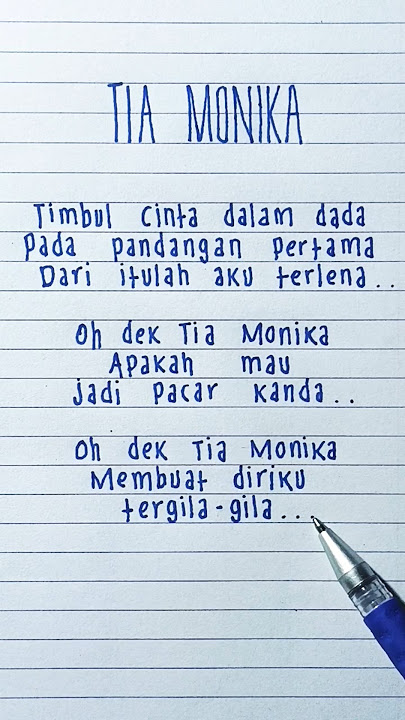 TIA MONIKA
Timbul cinta dalam dada
Pada pandangan pertama
Dari itulah aku terlena..
Oh dek Tia Monika
Apakah mau
jadi pacar kanda..
Oh dek Tia Monika
Membuat diriku
tergila-gila...